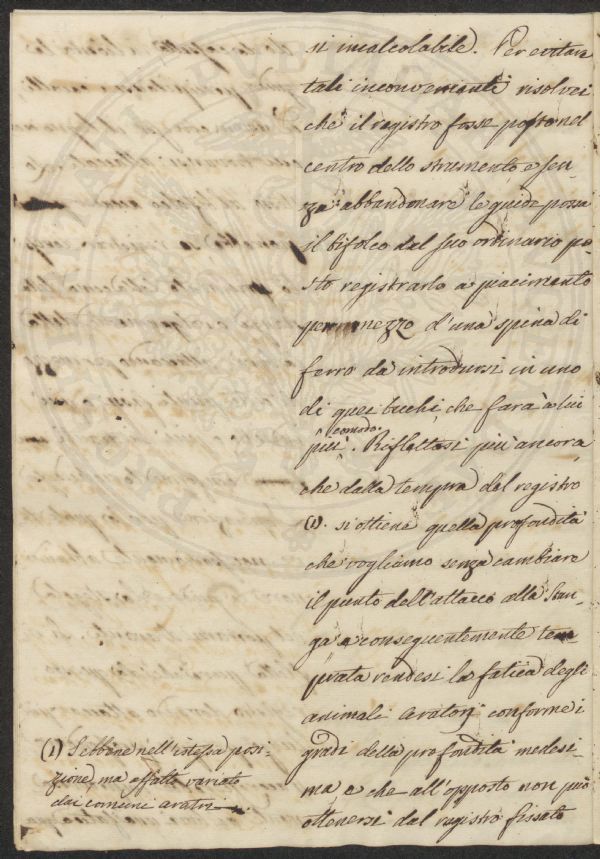 si incalcolabile. Per evitare
tali inconvenienti risolvei
che il registro fosse posto nel
centro dello strumento e sen-
za abbandonare le guide possa
il bifolco dal suo ordinario po-
sto registrarlo a piacimento
per mezzo d'una spina di
ferro da introdursi in uno
di quei buchi, che farà a lui
comodo.
più. Riflettasi più ancora
che dalla tempra del registro
(1). si ottiene quella profondità
che vogliamo senza cambiare
il punto dell'attacco alla stan-
ga e conseguentemente tem
prata rendesi la fatica degli
animale aratorj conforme i
gradi della profondità medesi-
ma e che all'opposto non può
ottenersi dal registro fissato
(1) Sebbene nell'istessa posi-
zione, ma affatto variato
dai comuni aratri